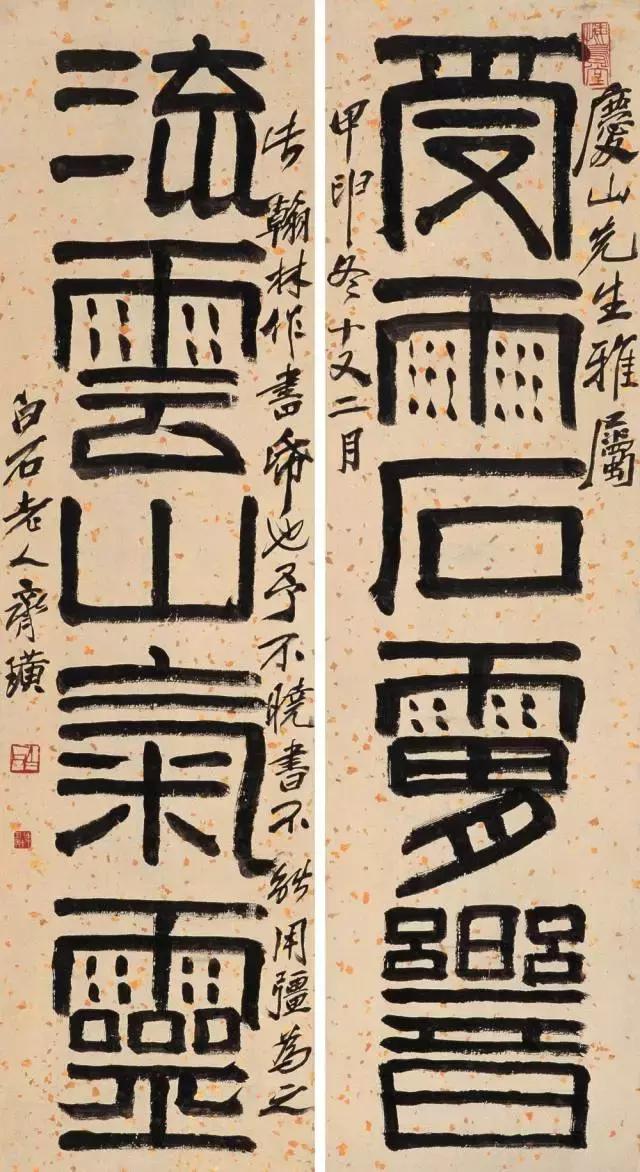 慶山先生雅屬
受雨石
甲申冬十又二月
流雲山氣靈
翰林作書也予不曉書不能用彊為之
白石老人齊璜